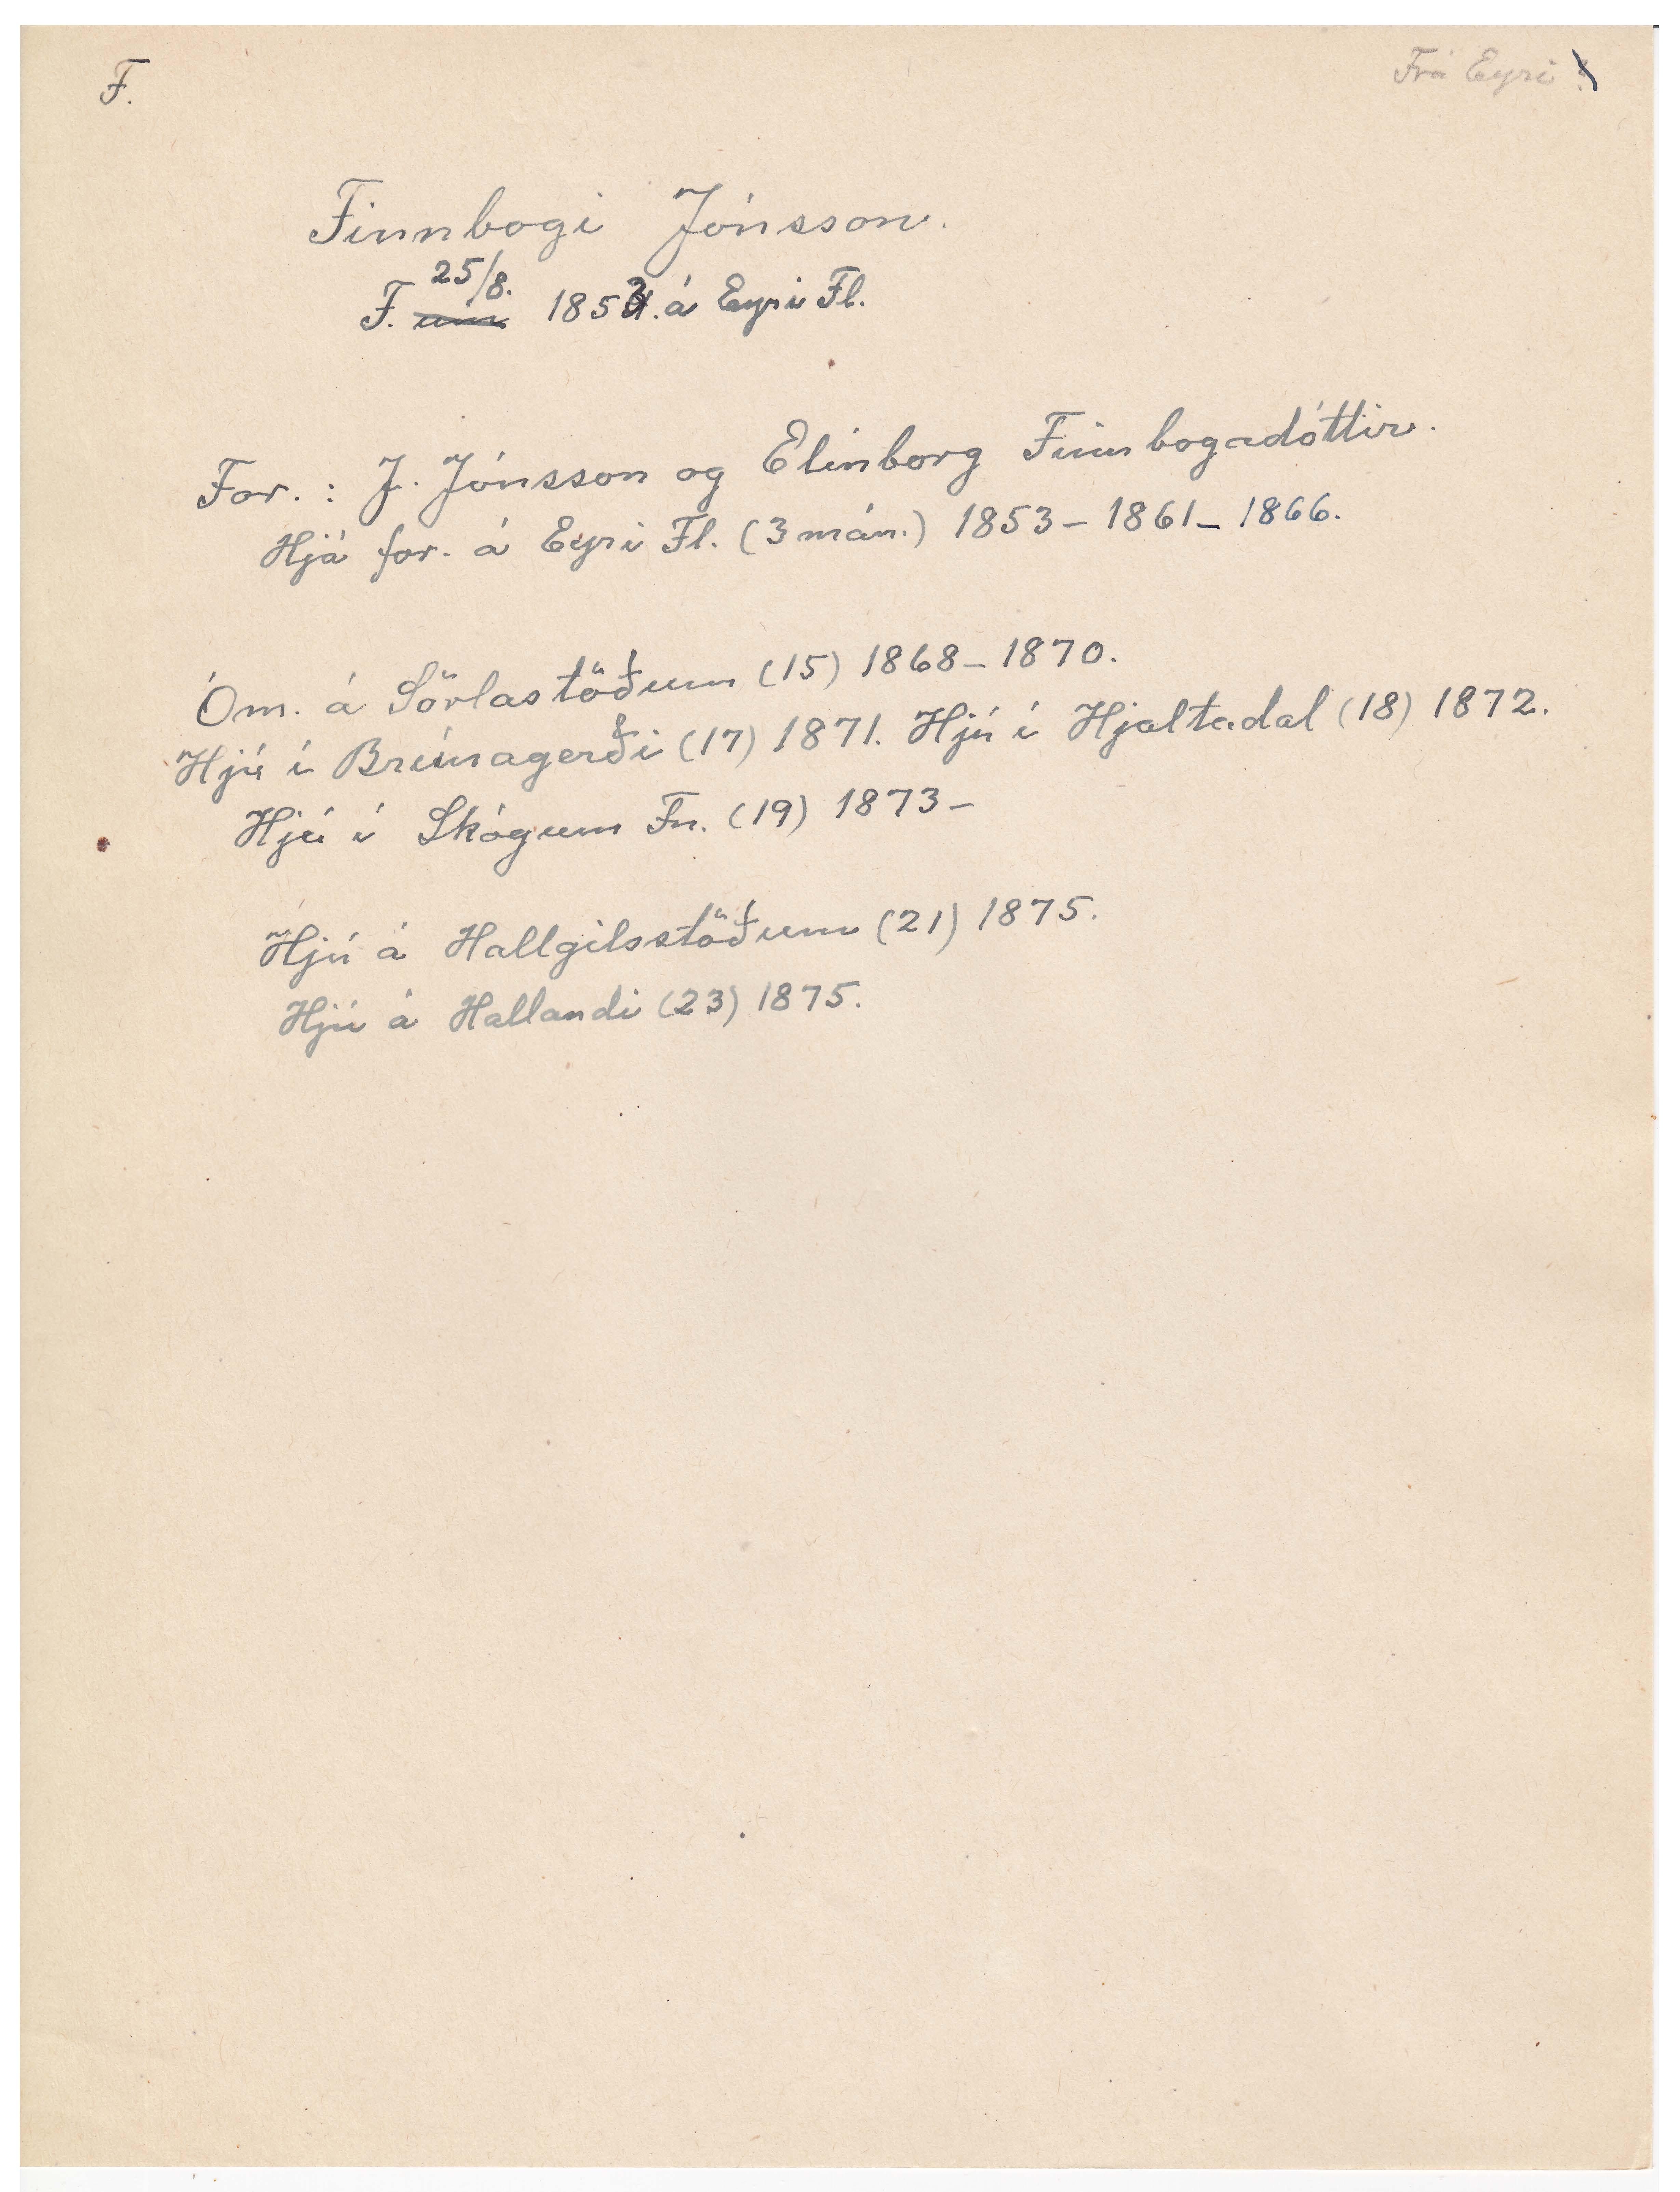 F.
Frá Eyri
Finnbogi Jónsson.
25/8.
F. um 1853. á Eyri Fl.
For. : J. Jónsson og Elínborg Finnbogadóttir.
Hjá for. á Eyri Fl. (3 mán.) 1853 – 1861 – 1866.
Óm. á Sörlastöðum (15) 1868 – 1870.
Hjú í Brúnagerði (17) 1871. Hjú í Hjaltadal (18) 1872.
Hjú í Skógum Fn. (19) 1873 –
Hjú á Hallgilsstöðum (21) 1875.
Hjú á Hallandi (23) 1875.